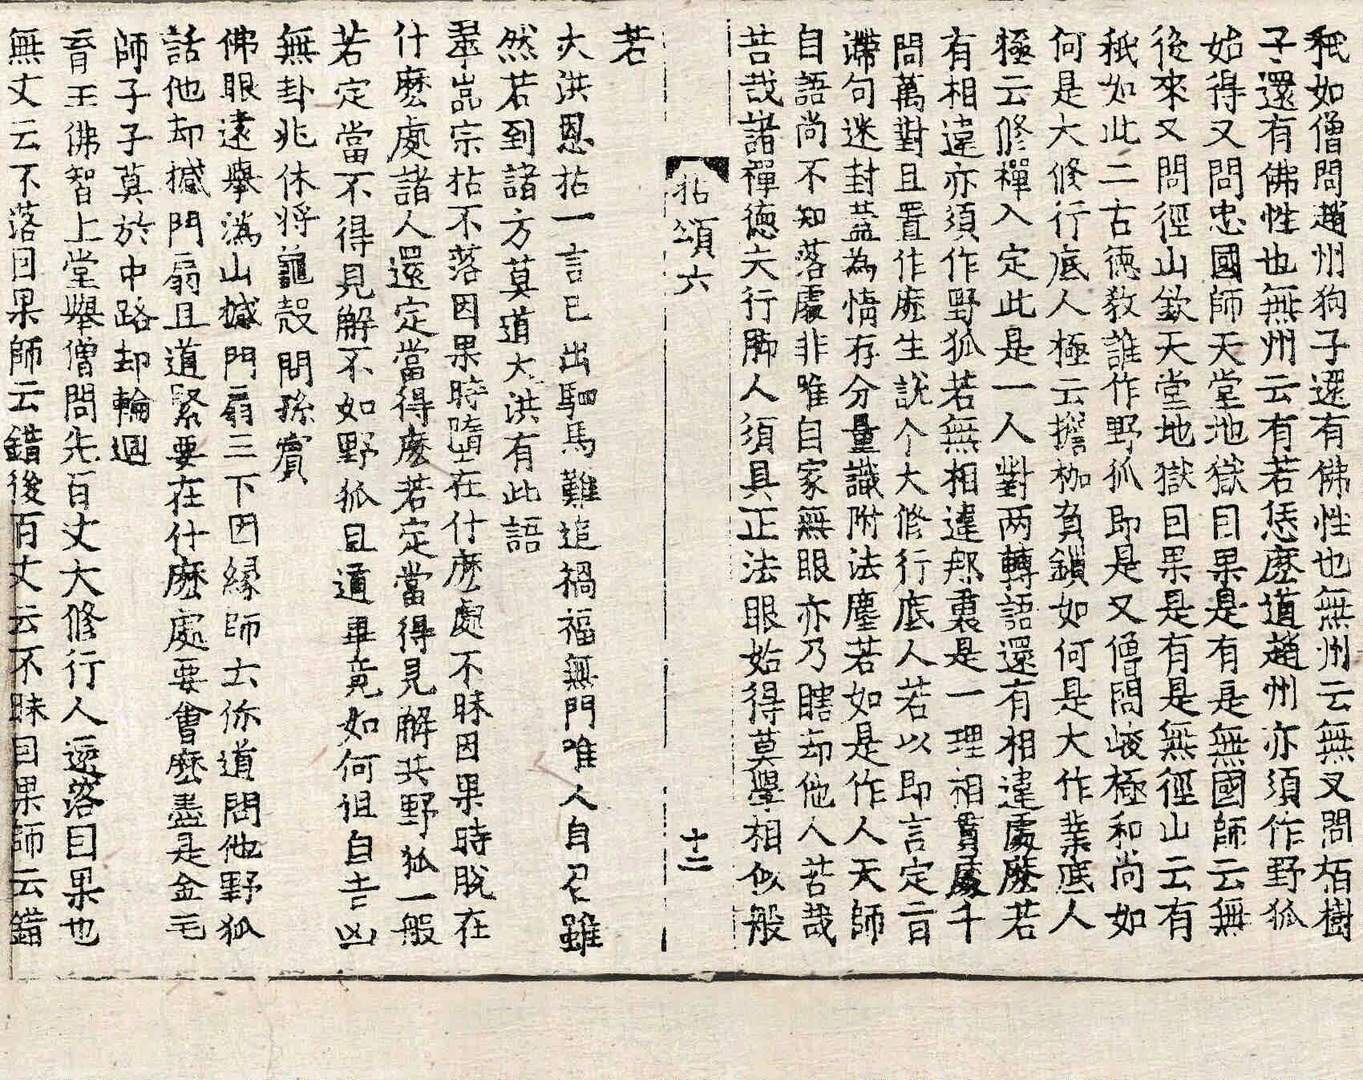 秖如僧問趙州狗子還有佛性也無州云無又問栢樹
子還有佛性也無州云有若恁麽道趙州亦須作野狐
始得又問忠國師天堂地獄因果是有是無國師云無
後來又問徑山欽天堂地獄因果是有是無徑山云有
秖如此二古德敎誰作野狐即是又僧問峻極和尚如
何是大修行底人極云擔枷負鎖如何是大作業底人
極云修禪入定此是一人對两轉語還有相違處麽若
有相違亦須作野狐若無相違那裏是一理相貫處千
問萬對且置作麽生說个大修行底人若以即言定言
滯句迷封葢爲情存分量識附法塵若如是作人天師
自語尚不知落處非唯自家無眼亦乃瞎却他人苦哉
苦哉諸禪德夫行脚人須具正法眼始得莫學相似般
拈頌六 十二
若
大洪恩拈一言已出駟馬難追禍福無門唯人自召雖
然若到諸方莫道大洪有此語
翠嵓宗拈不落因果時墮在什麽處不昧因果時脫在
什麽處諸人還定當得麽若定當得見解共野狐一般
若定當不得見解不如野狐且道畢竟如何诅自吉凶
無卦兆休将龜殼問孫賓
佛眼遠擧潙山撼門扇三下因緣師云你道問他野狐
話他却撼門扇且道緊要在什麽處要會麽盡是金毛
師子子莫於中路却輪迴
育王佛智上堂擧僧問先百丈大修行人還落因果也
無丈云不落因果師云錯後百丈云不昧因果師云錯